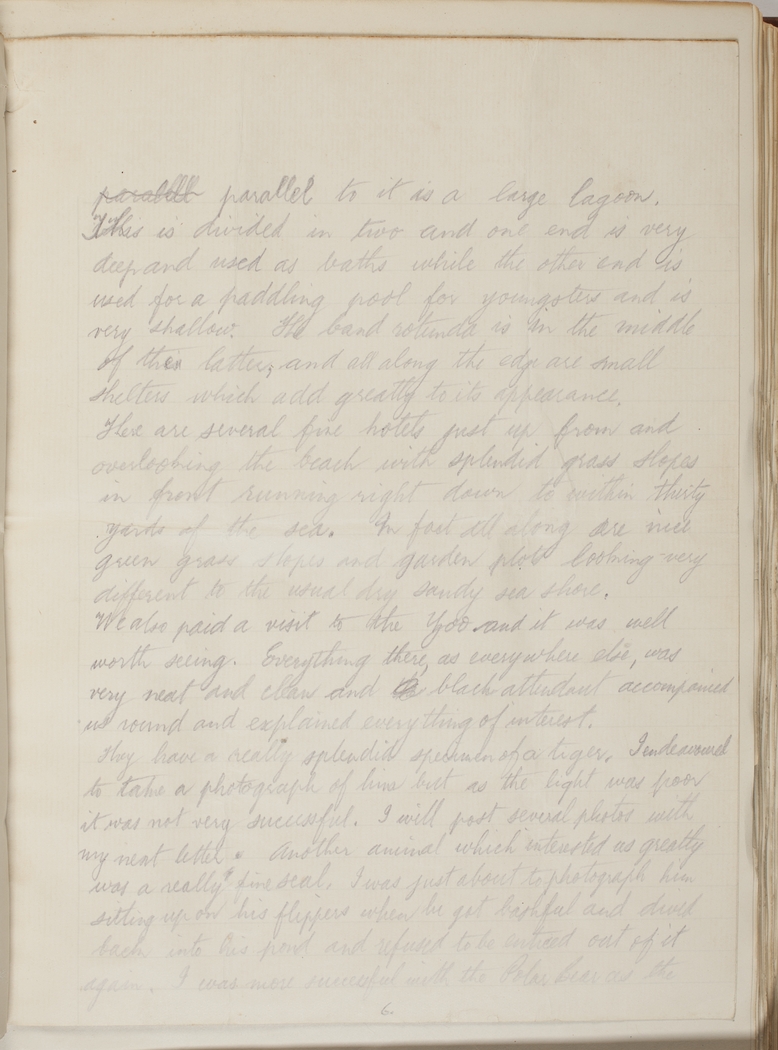 parallell parallel to it is a large lagoon.
This is divided in two and one end is very
deep and used as baths while the other end is
used for a paddling pool for youngsters and is
very shallow. The band rotunda is in the middle
of the latter, and all along the edge are small
shelters which add greatly to its appearance.
There are several fine hotels just up from and
overlooking the beach with splendid grass slopes
in front running right down to within thirty
yards of the sea. In fact all along are nice
green grass slopes and garden plots looking very
different to the usual dry sandy sea shore.
We also paid a visit to the Zoo and it was well
worth seeing. Everything there, as everywhere else, was
very neat and clean and a black attendant accompanied
us round and explained everything of interest.
They have a really splendid specimen of a tiger. I endeavoured
to take a photograph of him but as the light was poor
it was not very successful. I will post several photos with
my next letter. Another animal which interested us greatly
was a really fine seal. I was just about to photograph him
sitting up on his flippers when he got bashful and dived
back into his pond and refused to be enticed out of it
again. I was more successful with the Polar bear as the
6.